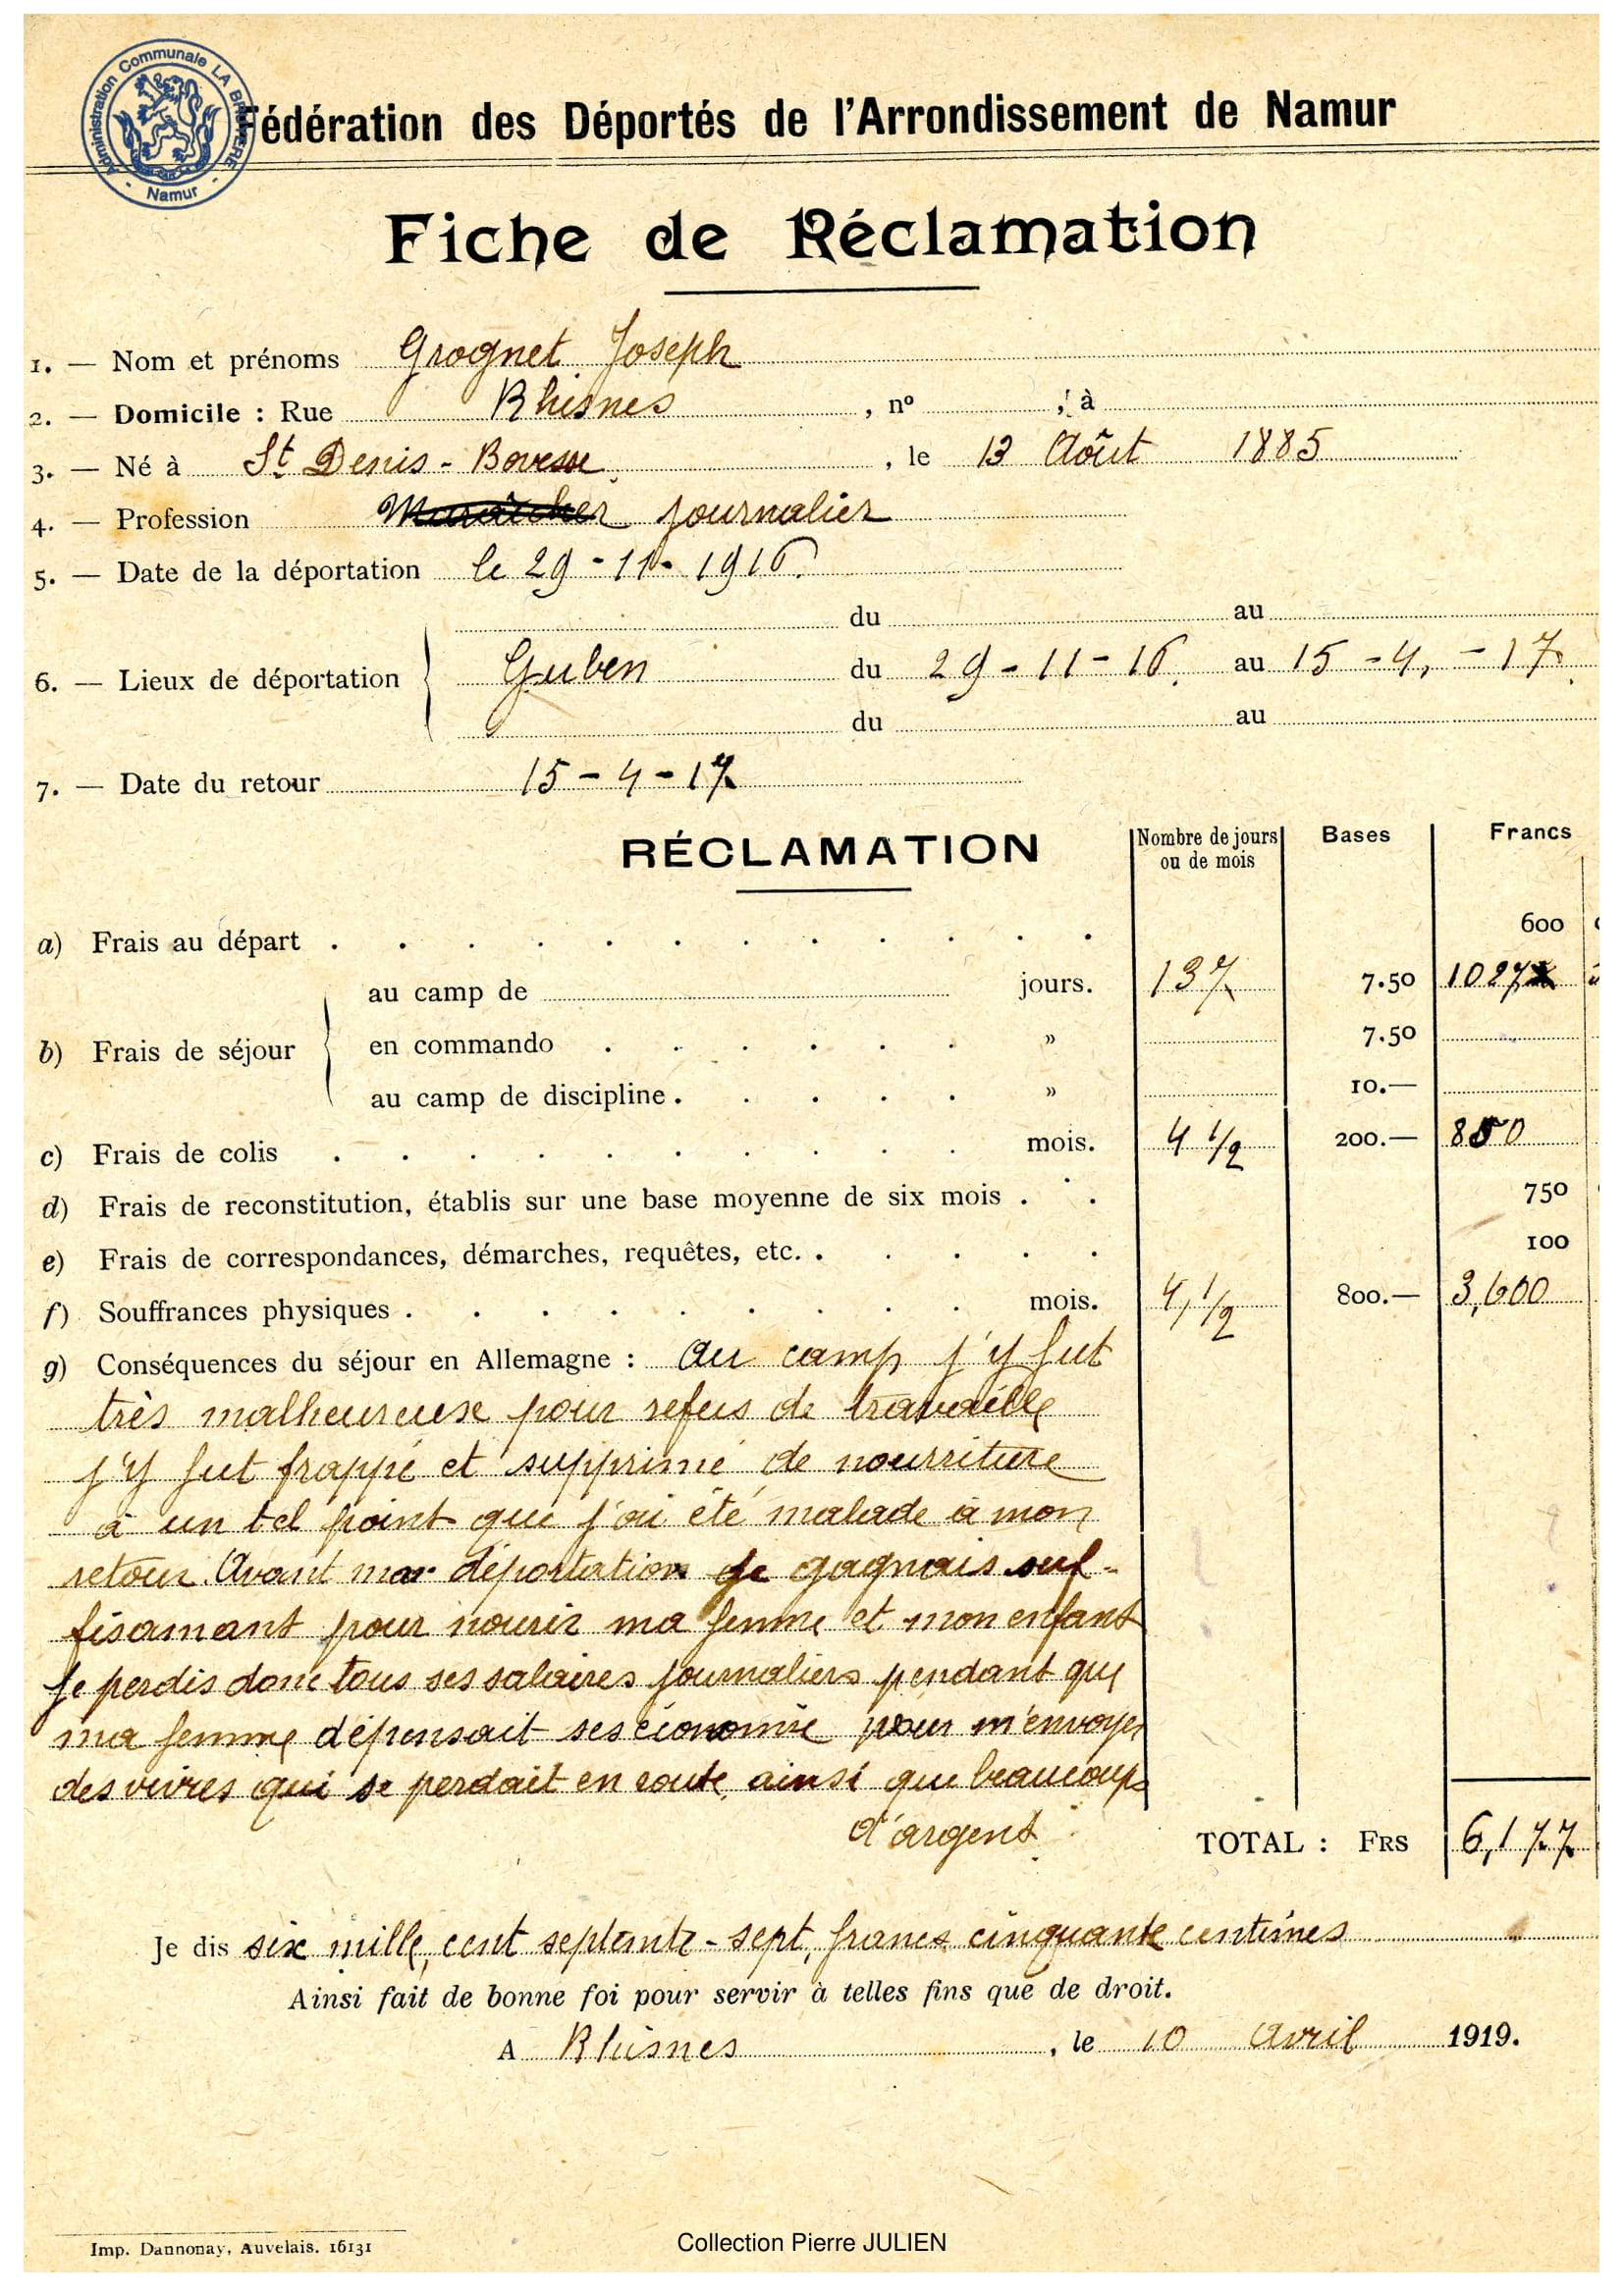 Administration Communale LA BRUYERE
- Namur -
Fédération des Déportés de l'Arrondissement de Namur
Fiche de Réclamation
1. — Nom et prénoms Grognet Joseph
2. — Domicile : Rue Rhisnes , nº , à
3. — Né à St Denis - Bovesse , le 13 Aôut 1885
4. — Profession Maraicher journalier
5. — Date de la déportation le 29 - 11 - 1916.
du au
6. — Lieux de déportation Guben du 29 - 11 - 16. au 15 - 4, - 17.
du au
7. — Date du retour 15 - 4 - 17
RÉCLAMATION
Nombre de jours ou de mois Bases Francs
a) Frais au départ . . . . . . . . . . . . 600
b) Frais de séjour
au camp de jours. 137 7.50 1027
en commando . . . . . . » 7.50
au camp de discipline . . . . . » 10.—
c) Frais de colis . . . . . . . . . . mois. 4 1/2 200.— 850
d) Frais de reconstitution, établis sur une base moyenne de six mois . . . 750
e) Frais de correspondances, démarches, requêtes, etc. . . . . . 100
f) Souffrances physiques . . . . . . . . . mois. 4, 1/2 800.— 3,600
g) Conséquences du séjour en Allemagne : Au camp j'y fut
très malheureuse pour refus de travaille
j'y fut frappé et supprimé de nourriture
à un tel point que j'ai été malade à mon
retour. Avant ma déportation je gagnais suf-
fisamant pour nourir ma femme et mon enfant
Je perdis donc tous ses salaires journaliers pendant que
ma femme dépensait ses économie pour m'envoyer
des vivres qui se perdait en route, ainsi que beaucoup
d'argent.
TOTAL : FRS 6,177
Je dis six mille, cent septante - sept, francs cinquante centimes
Ainsi fait de bonne foi pour servir à telles fins que de droit.
A Rhisnes , le 10 Avril 1919.
Imp. Dannonay, Auvelais. 16131
Collection Pierre JULIEN